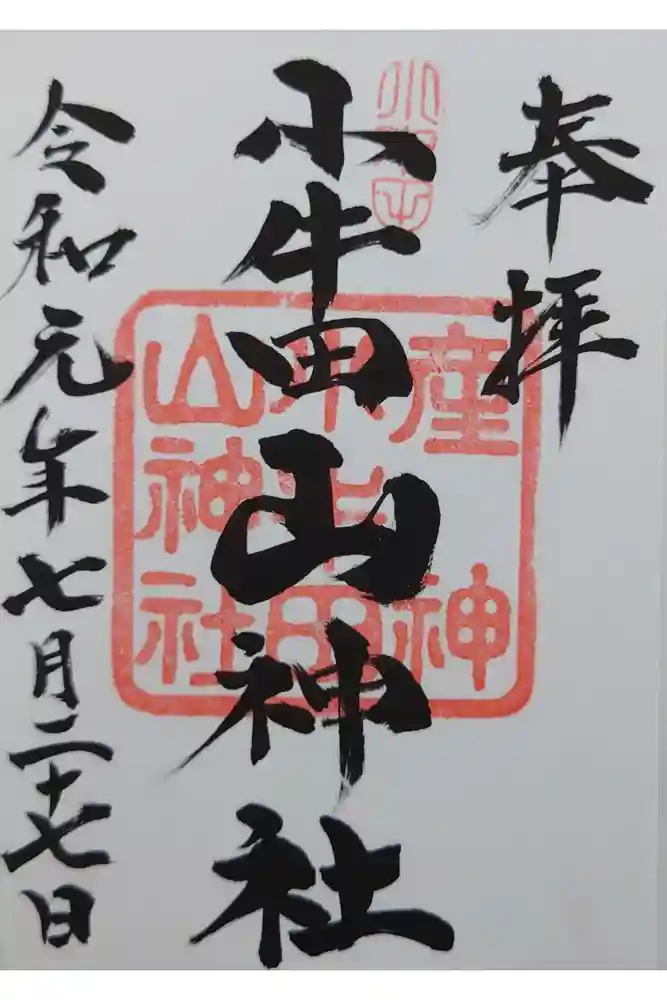 奉拝
小牛田山神社
令和元年七月二十七日
産神
小牛田
山神社
小牛田